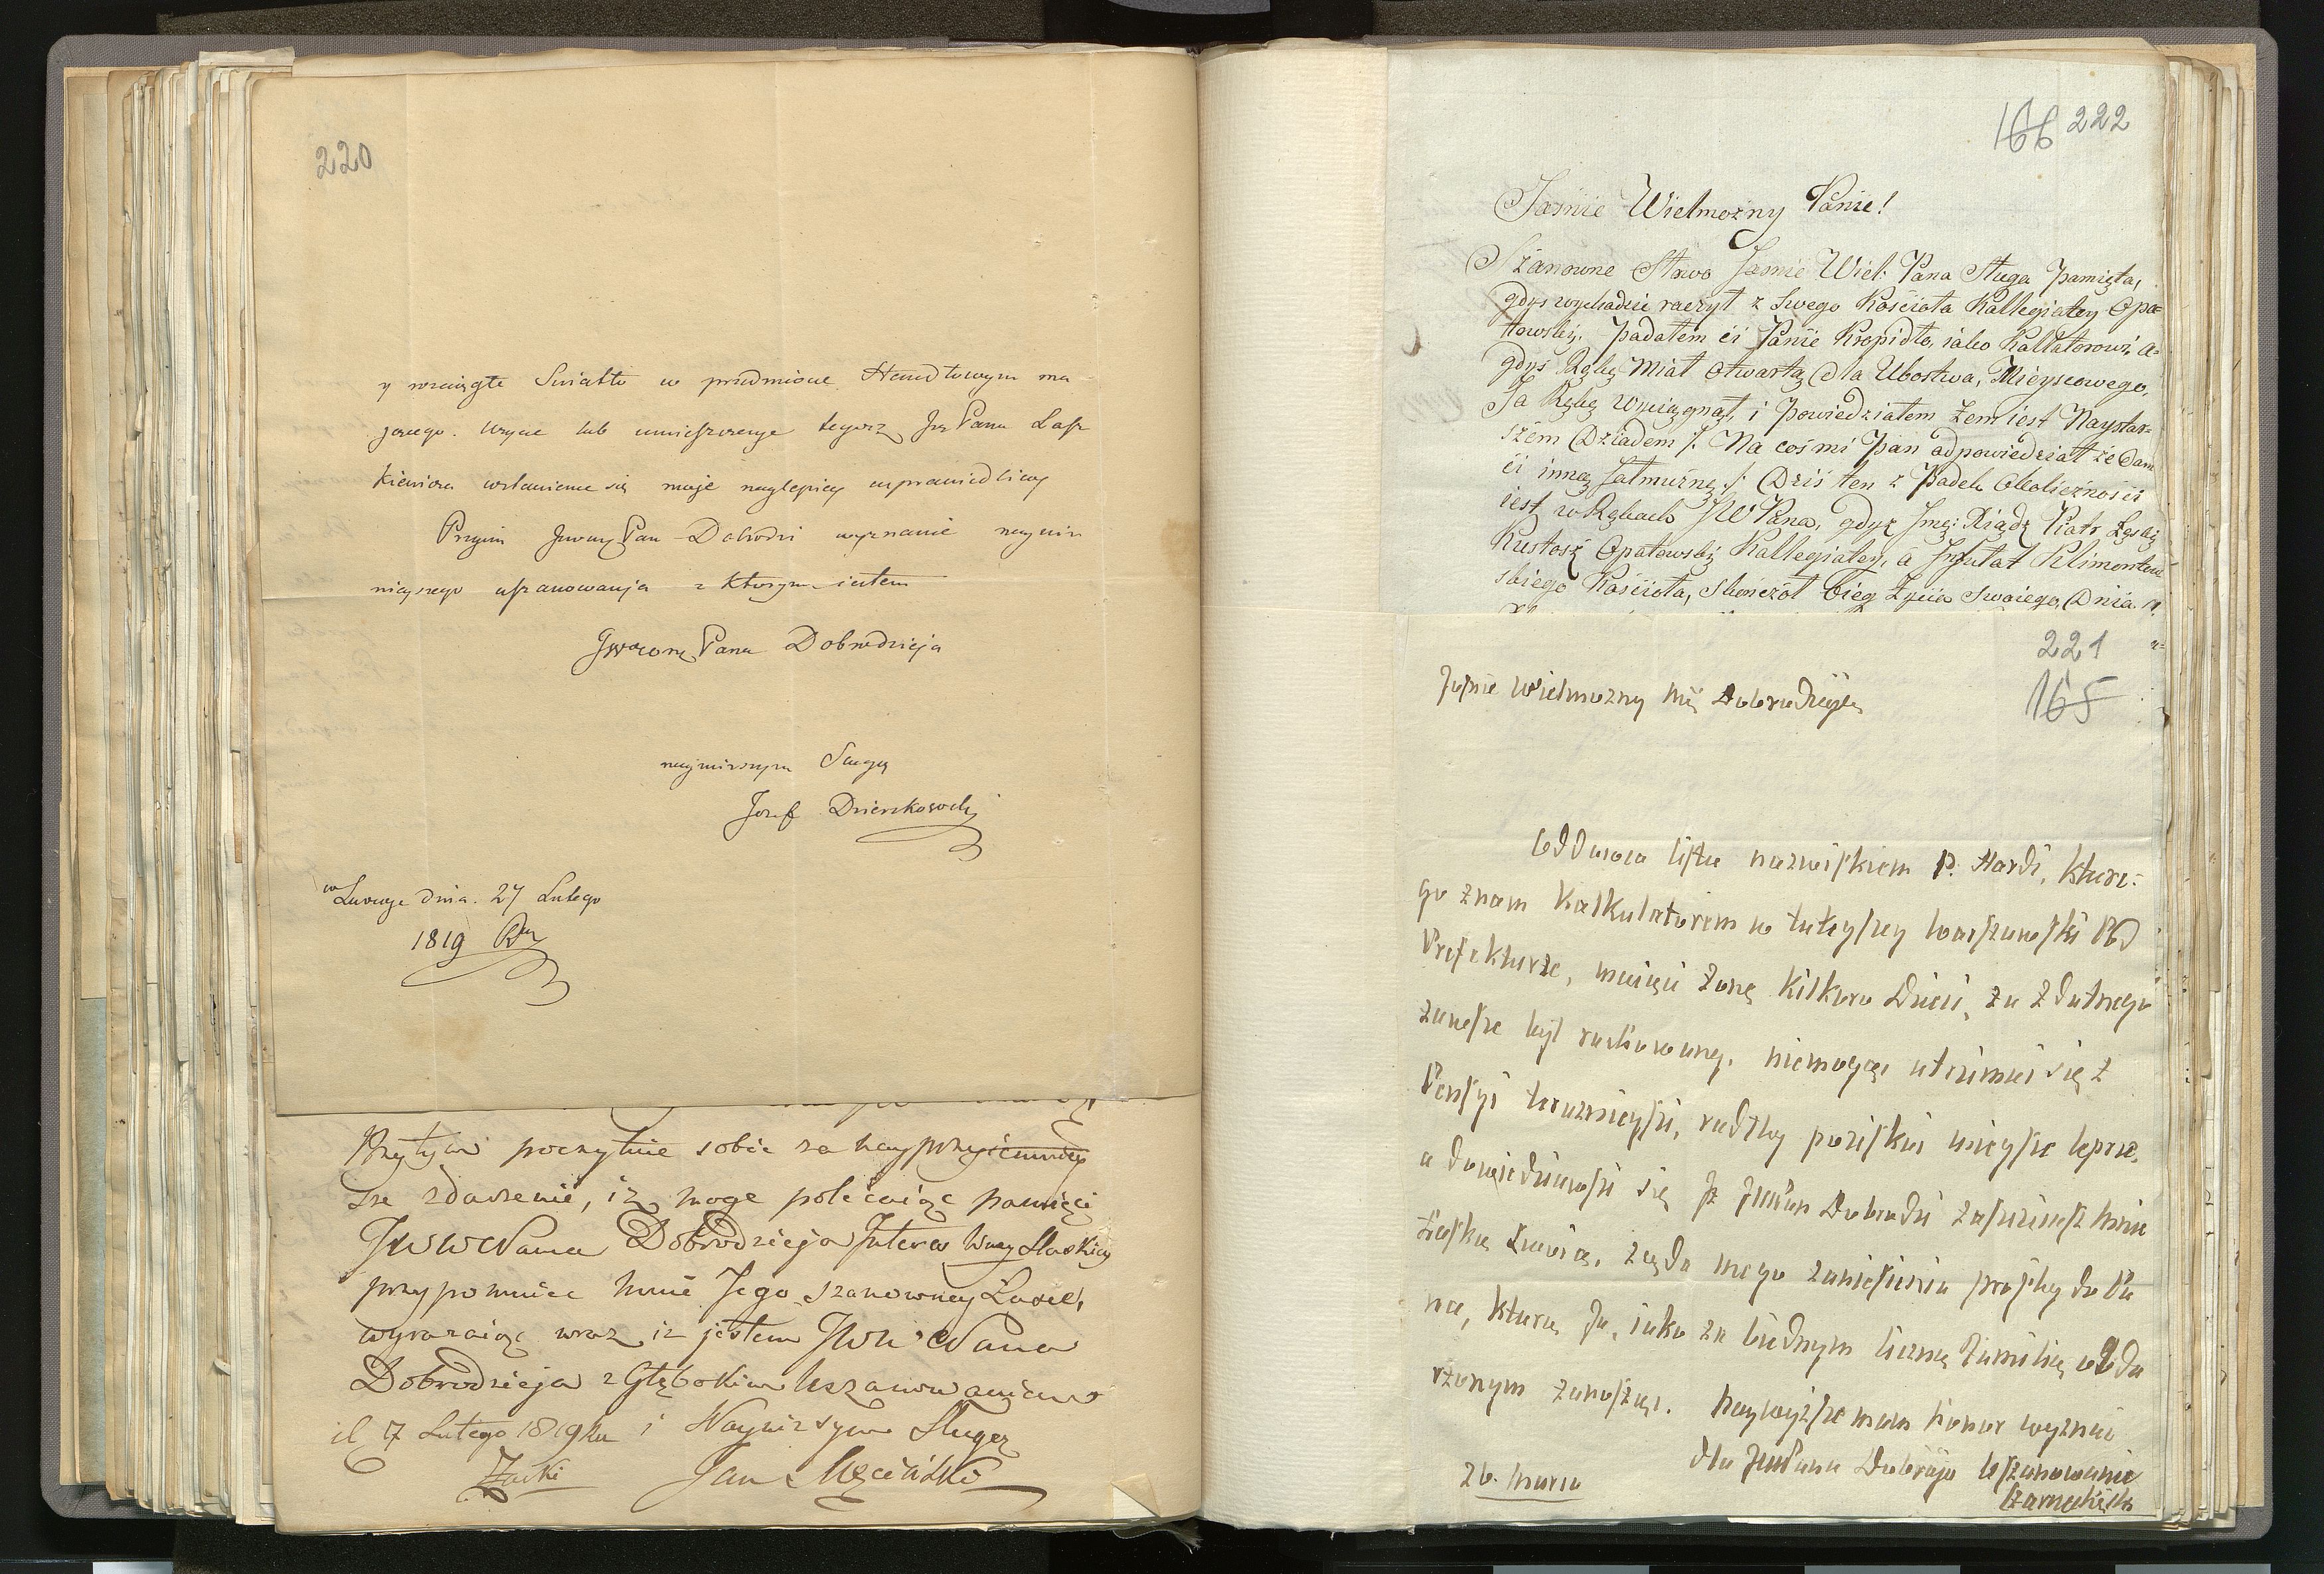 220
y wzięte Swiatło w przedmiocie Handlowym ma
jącego. Uzycie lub umieszczenye tegorz Jw Pana Łasz
kiewicza wstawienie się moje naylepiey usprawiedliwy
Przyim Jwny Pan Dobrodzi wyznanie nayuni
nieyszego uszanowanja z ktorym jestem
JWWgo Pana Dobrodzieja
nayniższym Sługą
Jozef Dzierzkowski
w Lwowye dnia. 27 Lutego
1819 Rku
Przytym poczytuię sobie za nayprzyiemniey
sze zdarzenie, iż mogę polecaiąc pamięci
JWW Pana Dobrodzieja Interes
przypomniec mnie Jego szanowney Łasce,
wyrazaiąc wraz iz jestem JWW Pana
Dobrodzieja z Głębokim Uszanowaniem
d 17 Lutego 1819 Ru i Nayniższym Sługą
Żaki Jan Męciński
166 222
Jaśnie Wielmożny Panie!
Szanowne Słowo Jasnie Wiel: Pana Sługa Pamięta,
gdyś wychodzić raczył z Swego Kościoła Kallegiatey Opa=
towskiy. Padałem ći Panie Kropidło, iako Kallatorowi, a=
gdyś Rękę miał otwartą dla Ubostwa, Mieyscowego,
Ja Rękę wyciągnął, i Powiedziałem Żem iest Naystar=
szem Dziadem /. Na coś mi Pan odpowiedział że Dam
ći inną Jałmużnę ./ Dziś ten z Padek Okolicznośći
iest w Rękach JW Pana, gdyż Jmći Xiądz Piotr Łęski
Kustosz Opatowskiy Kallegiatey, a Jnfułat Klimontow
skiego Kościoła, Skończół bieg Życia Swoiego, Dnia
221
165
Jaśnie Wielmożny Mći Dobrodzieju
Oddawca listu nazwiskiem P. Hardi, które=
go znam Kalkulatorem w tuteyszey Warszawski Pod
Prefekturze, maiąci żonę kilkoro Dzieci, za zdatnego
zawsze był rachowany, niemogąc utrzimać się z
Pensyi teraznieyszi, radłby poziskać mieysce lepsze,
a dowiedziawszi się Jż JW Pan Dobrodzi zaszczicasz mnie
Łaską Swoią, żąda mego zaniesienia prośby do Pa
na, którą Ja, iako za biednym liczną familią obda
rzonym zanoszę. Naywyższe mam honor wyznać
dla JW Pana Dobrdzja Uszanowanie
26. Marca
Czarnecki